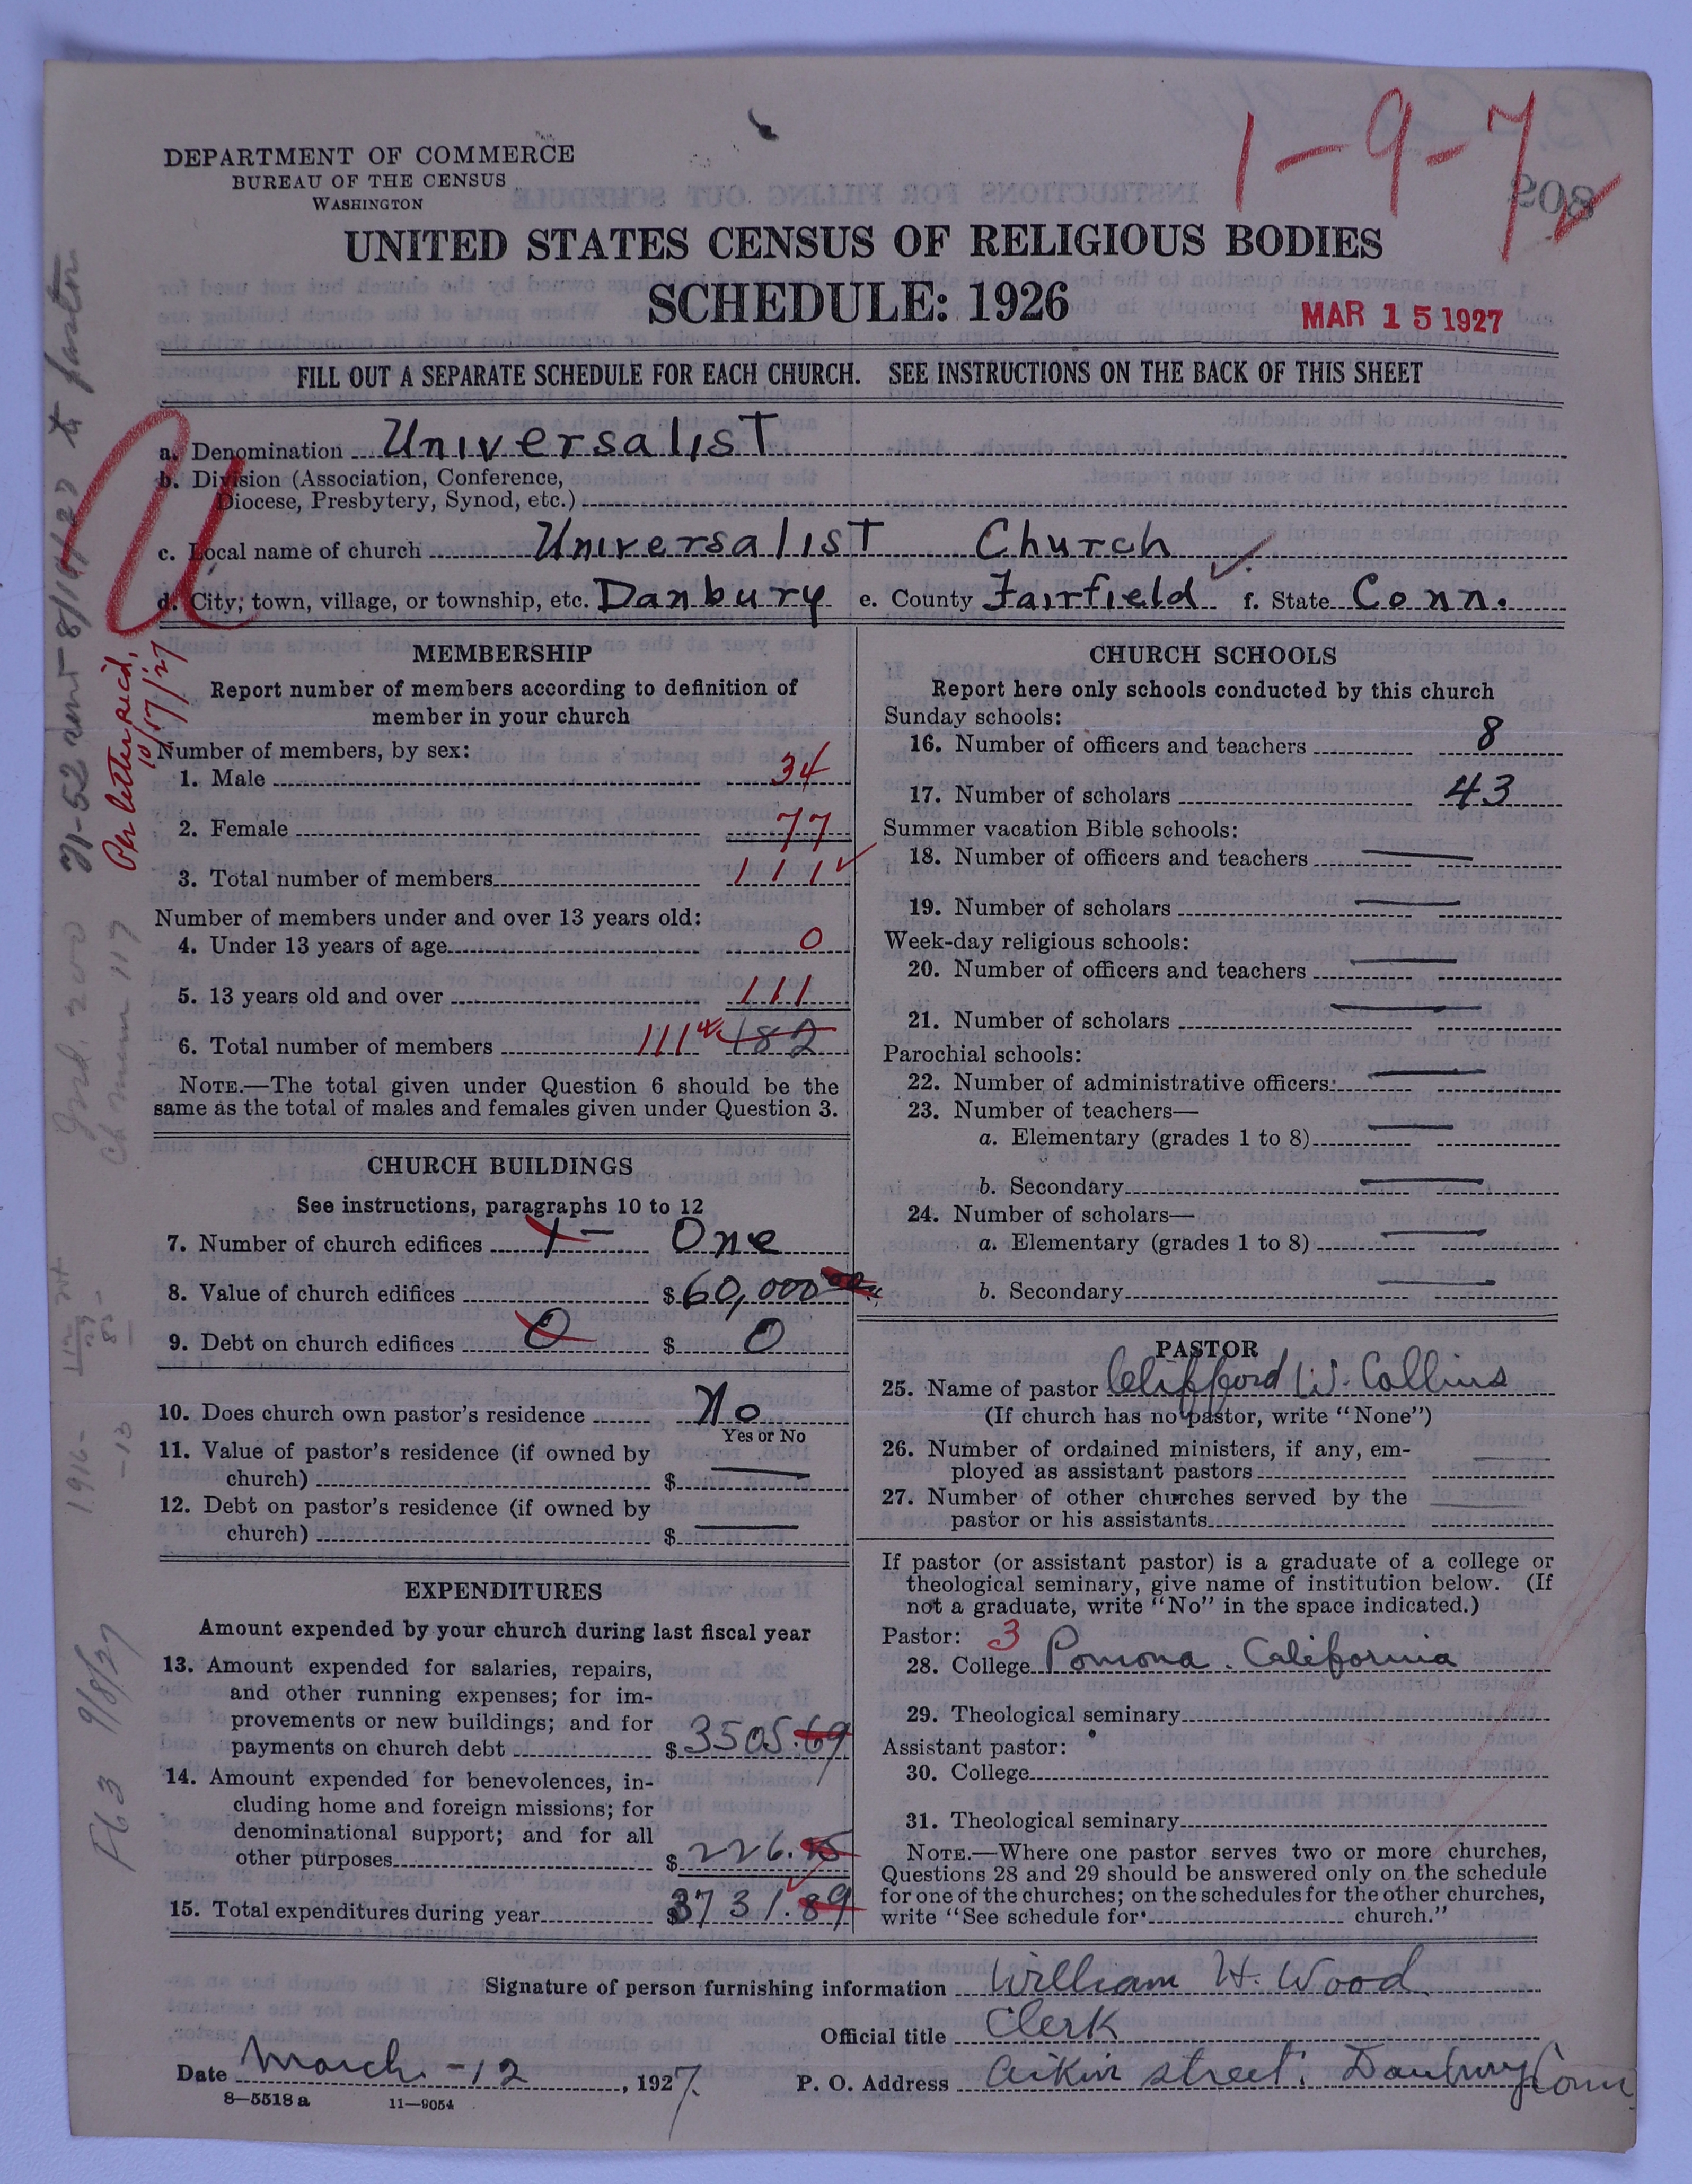 1-9-7
208
DEPARTMENT OF COMMERCE
BUREAU OF THE CENSUS
WASHINGTON
UNITED STATES CENSUS OF RELIGIOUS BODIES
SCHEDULE: 1926
MAR 15 1927
FILL OUT A SEPARATE SCHEDULE FOR EACH CHURCH. SEE INSTRUCTIONS ON THE BACK OF THIS SHEET
a. Denomination Universalist
b. Division (Association, Conference,
Diocese, Presbytery, Synod, etc.)
c. Local name of church Universalist Church
d. City, town, village, or township, etc. Danbury e. County Fairfield f. State Conn.
MEMBERSHIP
Report number of members according to definition of
member in your church
Number of members, by sex:
1. Male 34
2. Female 77
3. Total number of members 111
Number of members under and over 13 years old:
4. Under 13 years of age 0
5. 13 years old and over 111
6. Total number of members 111 182
NOTE.—The total given under Question 6 should be the
same as the total of males and females given under Question 3.
CHURCH BUILDINGS
See instructions, paragraphs 10 to 12
7. Number of church edifices 1 — One
8. Value of church edifices $60,000
9. Debt on church edifices 0 $ 0
10. Does church own pastor's residence No
Yes or No
11. Value of pastor's residence (if owned by
church) $ —
12. Debt on pastor's residence (if owned by
church) $ —
EXPENDITURES
Amount expended by your church during last fiscal year
13. Amount expended for salaries, repairs,
and other running expenses; for im-
provements or new buildings; and for
payments on church debt $ 3505.69
14. Amount expended for benevolences, in-
cluding home and foreign missions; for
denominational support; and for all
other purposes $ 226.
15. Total expenditures during year $3731.89
CHURCH SCHOOLS
Report here only schools conducted by this church
Sunday schools:
16. Number of officers and teachers 8
17. Number of scholars 43
Summer vacation Bible schools:
18. Number of officers and teachers —
19. Number of scholars —
Week-day religious schools:
20. Number of officers and teachers —
21. Number of scholars —
Parochial schools:
22. Number of administrative officers: —
23. Number of teachers—
a. Elementary (grades 1 to 8) —
b. Secondary —
24. Number of scholars—
a. Elementary (grades 1 to 8) —
b. Secondary —
PASTOR
25. Name of pastor Clifford W. Collins
(If church has no pastor, write "None")
26. Number of ordained ministers, if any, em-
ployed as assistant pastors —
27. Number of other churches served by the
pastor or his assistants —
If pastor (or assistant pastor) is a graduate of a college or
theological seminary, give name of institution below. (If
not a graduate, write "No" in the space indicated.)
Pastor: 3
28. College Pomona. California
29. Theological seminary
Assistant pastor:
30. College
31. Theological seminary
NOTE.—Where one pastor serves two or more churches,
Questions 28 and 29 should be answered only on the schedule
for one of the churches; on the schedules for the other churches,
write "See schedule for church."
Signature of person furnishing information William H. Wood
Official title Clerk
Date March -12, 1927. P. O. Address Aikin street. Danbury Conn
8—5518 a 11—9054
71-52 sent 8/14/27 to pastor
Per letter rec'd,
10/17/27
Ch mem 117
1916-
-13
F63 9/8/27